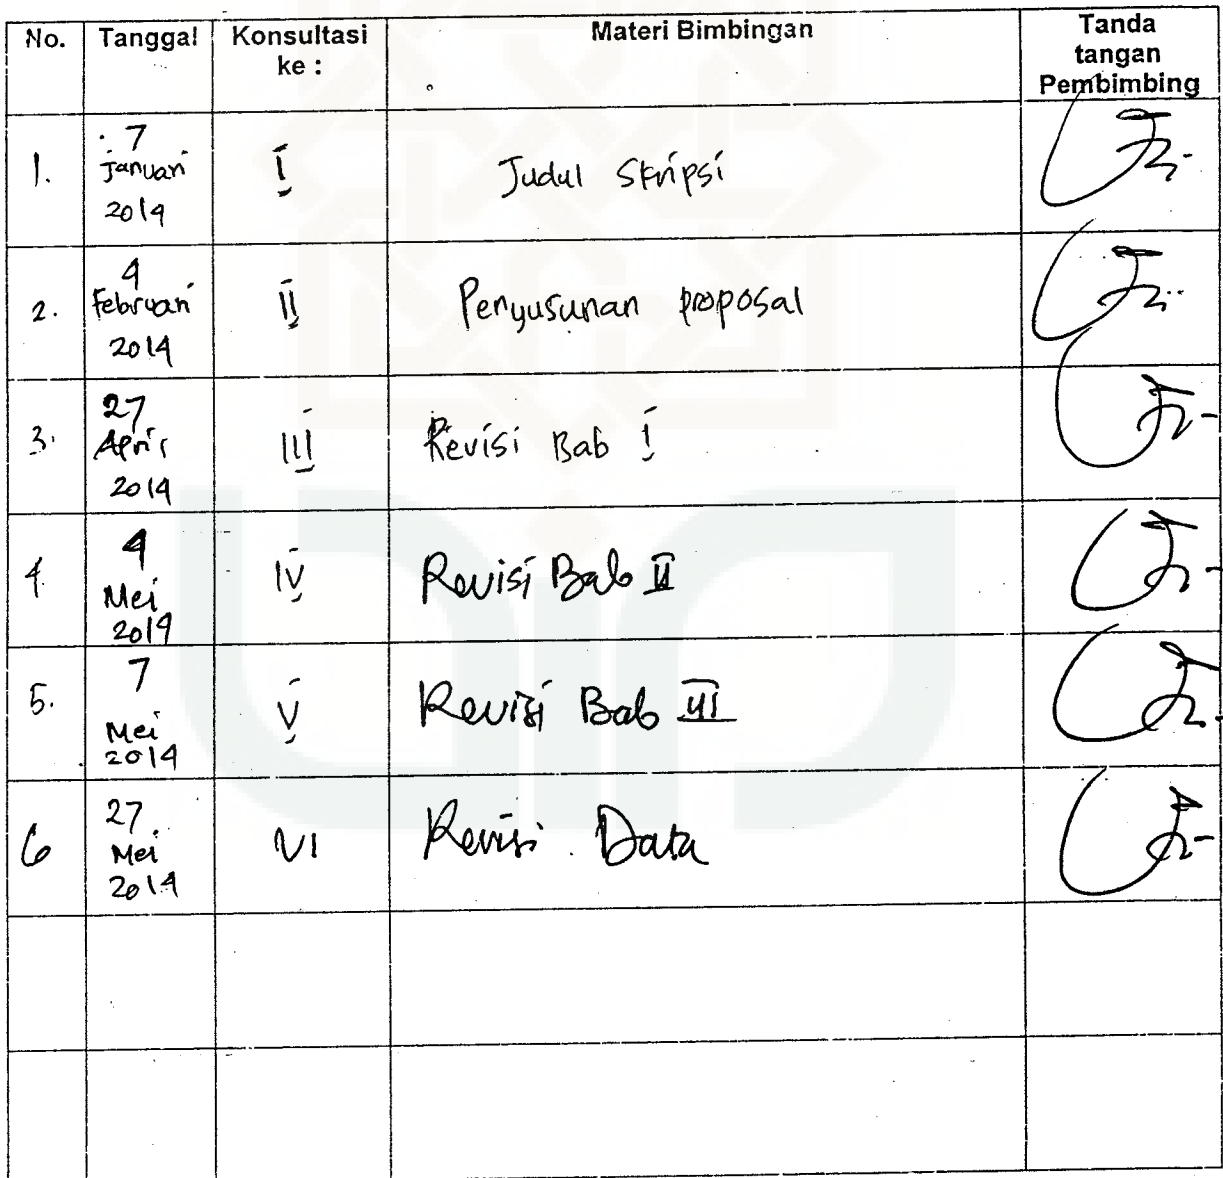 No. Tanggal Konsultasi ke : Materi Bimbingan Tanda tangan Pembimbing
1. 7 Januari 2014 I Judul Skripsi
2. 4 Februari 2014 II Penyusunan proposal
3. 27 April 2014 III Revisi Bab I
4. 4 Mei 2014 IV Revisi Bab II
5. 7 Mei 2014 V Revisi Bab III
6 27 Mei 2014 VI Revisi Data